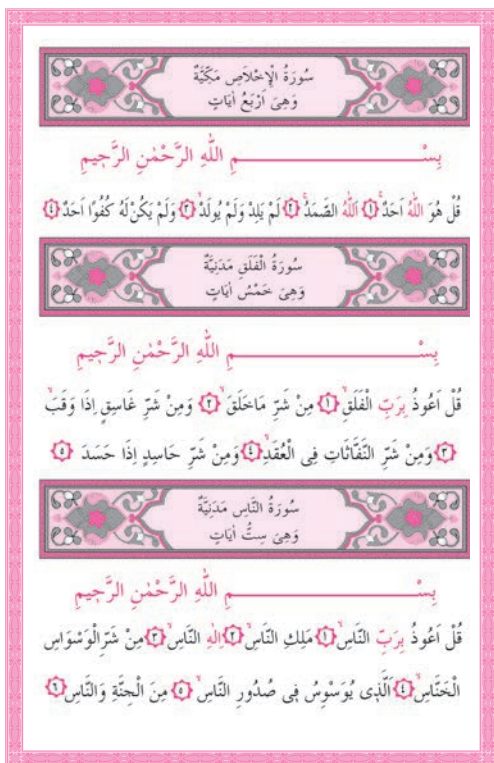 سُورَةُ الْاِخْلَاصِ مَكِّيَّةٌ
وَهِىَ اَرْبَعُ اٰيَاتٍ
بِسْــــــــــــــــــــمِ اللّٰهِ الرَّحْمٰنِ الرَّحٖيمِ
قُلْ هُوَ اللّٰهُ اَحَدٌۚ ﴿١﴾ اَللّٰهُ الصَّمَدُۚ ﴿٢﴾ لَمْ يَلِدْ وَلَمْ يُولَدْۙ ﴿٣﴾ وَلَمْ يَكُنْ لَهُ كُفُوًا اَحَدٌ ﴿٤﴾
سُورَةُ الْفَلَقِ مَدَنِيَّةٌ
وَهِىَ خَمْسُ اٰيَاتٍ
بِسْــــــــــــــــــــمِ اللّٰهِ الرَّحْمٰنِ الرَّحٖيمِ
قُلْ اَعُوذُ بِرَبِّ الْفَلَقِۙ ﴿١﴾ مِنْ شَرِّ مَاخَلَقَۙ ﴿٢﴾ وَمِنْ شَرِّ غَاسِقٍ اِذَا وَقَبَۙ
﴿٣﴾ وَمِنْ شَرِّ النَّفَّاثَاتِ فِى الْعُقَدِۙ ﴿٤﴾ وَمِنْ شَرِّ حَاسِدٍ اِذَا حَسَدَ ﴿٥﴾
سُورَةُ النَّاسِ مَدَنِيَّةٌ
وَهِىَ سِتُّ اٰيَاتٍ
بِسْــــــــــــــــــــمِ اللّٰهِ الرَّحْمٰنِ الرَّحٖيمِ
قُلْ اَعُوذُ بِرَبِّ النَّاسِۙ ﴿١﴾ مَلِكِ النَّاسِۙ ﴿٢﴾ اِلٰهِ النَّاسِۙ ﴿٣﴾ مِنْ شَرِّ الْوَسْوَاسِ
الْخَنَّاسِۙ ﴿٤﴾ اَلَّذٖى يُوَسْوِسُ فٖى صُدُورِ النَّاسِۙ ﴿٥﴾ مِنَ الْجِنَّةِ وَالنَّاسِ ﴿٦﴾